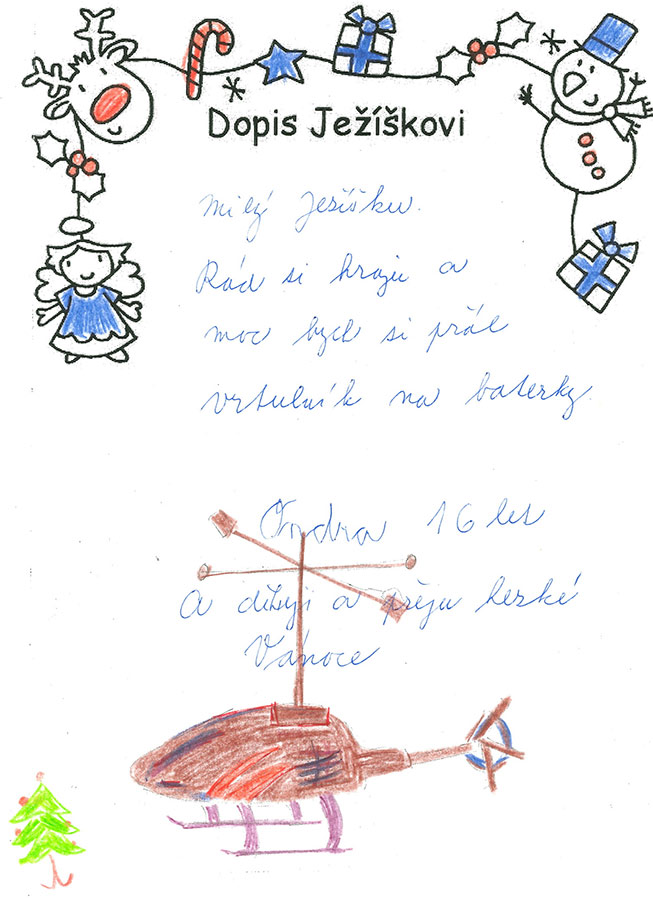 Dopis Ježíškovi
Milý Ježíšku.
Rád si hraju a
moc bych si přál
vrtulník na baterky
Ondra 16 let
A děkuji a přeju hezké
Vánoce